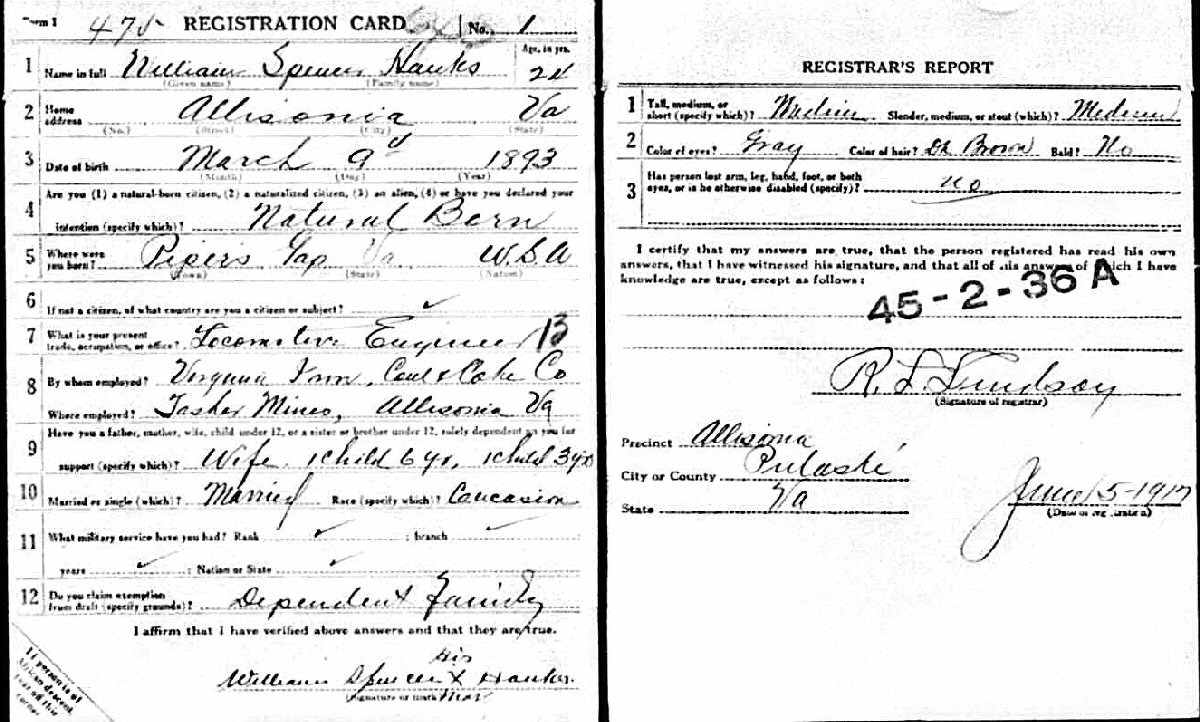 Form 1 475 REGISTRATION CARD No. 1
1 Name in full William Spencer Hanks Age, in yrs. 24
(Given name) (Family name)
2 Home address Allisonia Va
(No.) (Street) (City) (State)
3 Date of birth March 9 1893
(Month) (Day) (Year)
4 Are you (1) a natural-born citizen, (2) a naturalized citizen, (3) an alien, (4) or have you declared your
intention (specify which)? Natural Born
5 Where were you born? Pipers Gap Va U.S.A
(Town) (State) (Nation)
6 If not a citizen, of what country are you a citizen or subject? ✓
7 What is your present trade, occupation, or office? Locomotive Engineer 13
8 By whom employed? Virginia Iron, Coal & Coke Co
Where employed? Tasker Mines, Allisonia Va
9 Have you a father, mother, wife, child under 12, or a sister or brother under 12, solely dependent on you for
support (specify which)? Wife, 1 child 6 yr, 1 child 3 yrs
10 Married or single (which)? Married Race (specify which)? Caucasion
11 What military service have you had? Rank ✓ ; branch ✓
years ✓ ; Nation or State ✓
12 Do you claim exemption from draft (specify grounds)? Dependent Family
I affirm that I have verified above answers and that they are true.
His
William Spencer X Hanks
(Signature or mark) Mark
If person is of
African descent,
tear off this
corner.
REGISTRAR'S REPORT
1 Tall, medium, or short (specify which)? Medium Slender, medium, or stout (which)? Medium
2 Color of eyes? Gray Color of hair? Dk Brown Bald? No
3 Has person lost arm, leg, hand, foot, or both
eyes, or is he otherwise disabled (specify)? No
I certify that my answers are true, that the person registered has read his own
answers, that I have witnessed his signature, and that all of his answers of which I have
knowledge are true, except as follows:
45-2-36 A
R. L. Lindsay
(Signature of registrar)
Precinct Allisonia
City or County Pulaski
State Va
June 5-1917
(Date of registration)